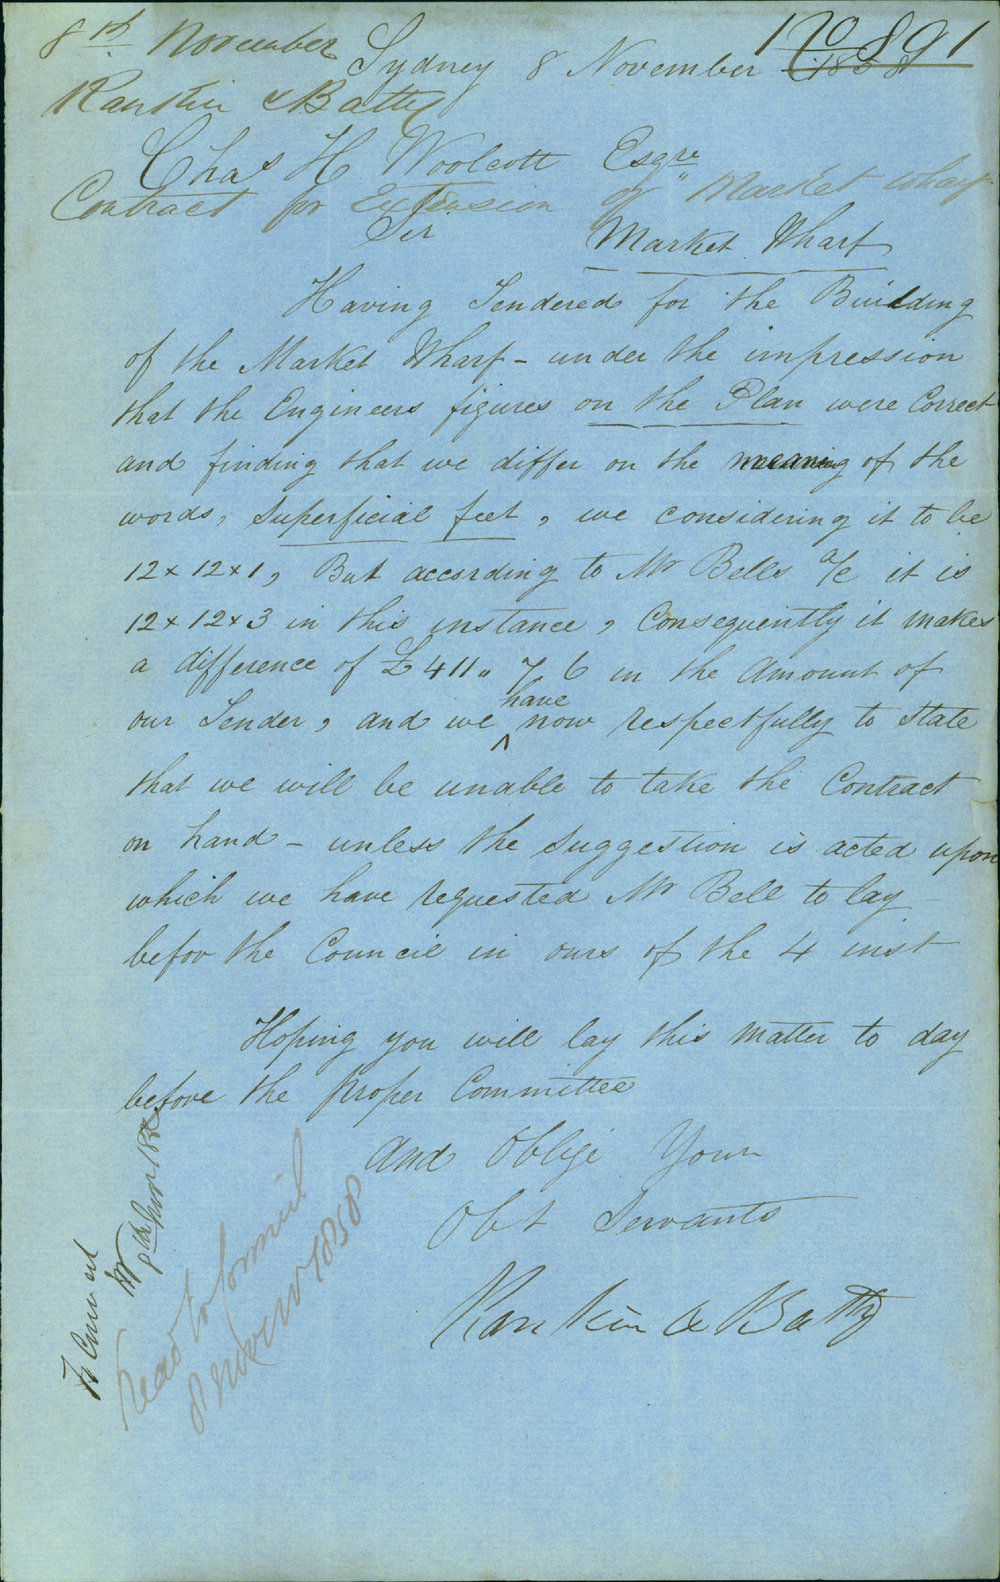 8th November
No 891
Sydney 8 November 1858
Rankin & Batty
Chas H Woolcott Esqre
Contract for Extension of Market Wharf
Sir
Market Wharf
Having Tendered for the Building
of the Market Wharf - under the impression
that the Engineers figures on the Plan were Correct
and finding that we differ on the meaning of the
words, Superficial feet, we considering it to be
12 x 12 x 1, But according to Mr Bells a/c it is
12 x 12 x 3 in this instance, Consequently it makes
a difference of £411 " 7 6 in the Amount of
have
our Tender, and we ^ now respectfully to state
that we will be unable to take the Contract
on hand - unless the Suggestion is acted upon
which we have requested Mr Bell to lay
befor the Council in ours of the 4 inst
Hoping you will lay this matter to day
before the proper Committee
And Oblige Your
Obt Servants
Rankin & Batty
To Council
8th Nov
Read to Council
8 Novr 1858